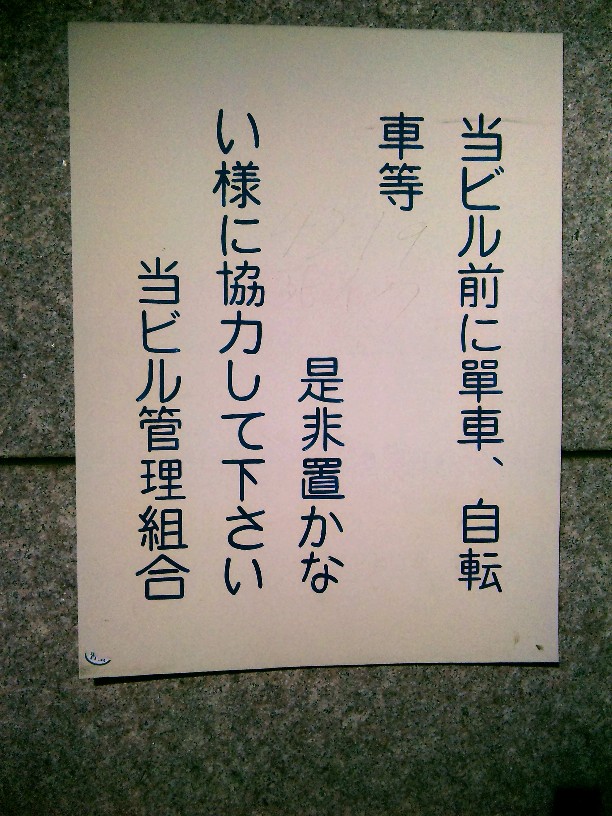 当ビル前に單車、自転
車等
是非置かな
い様に協力して下さい
当ビル管理組合